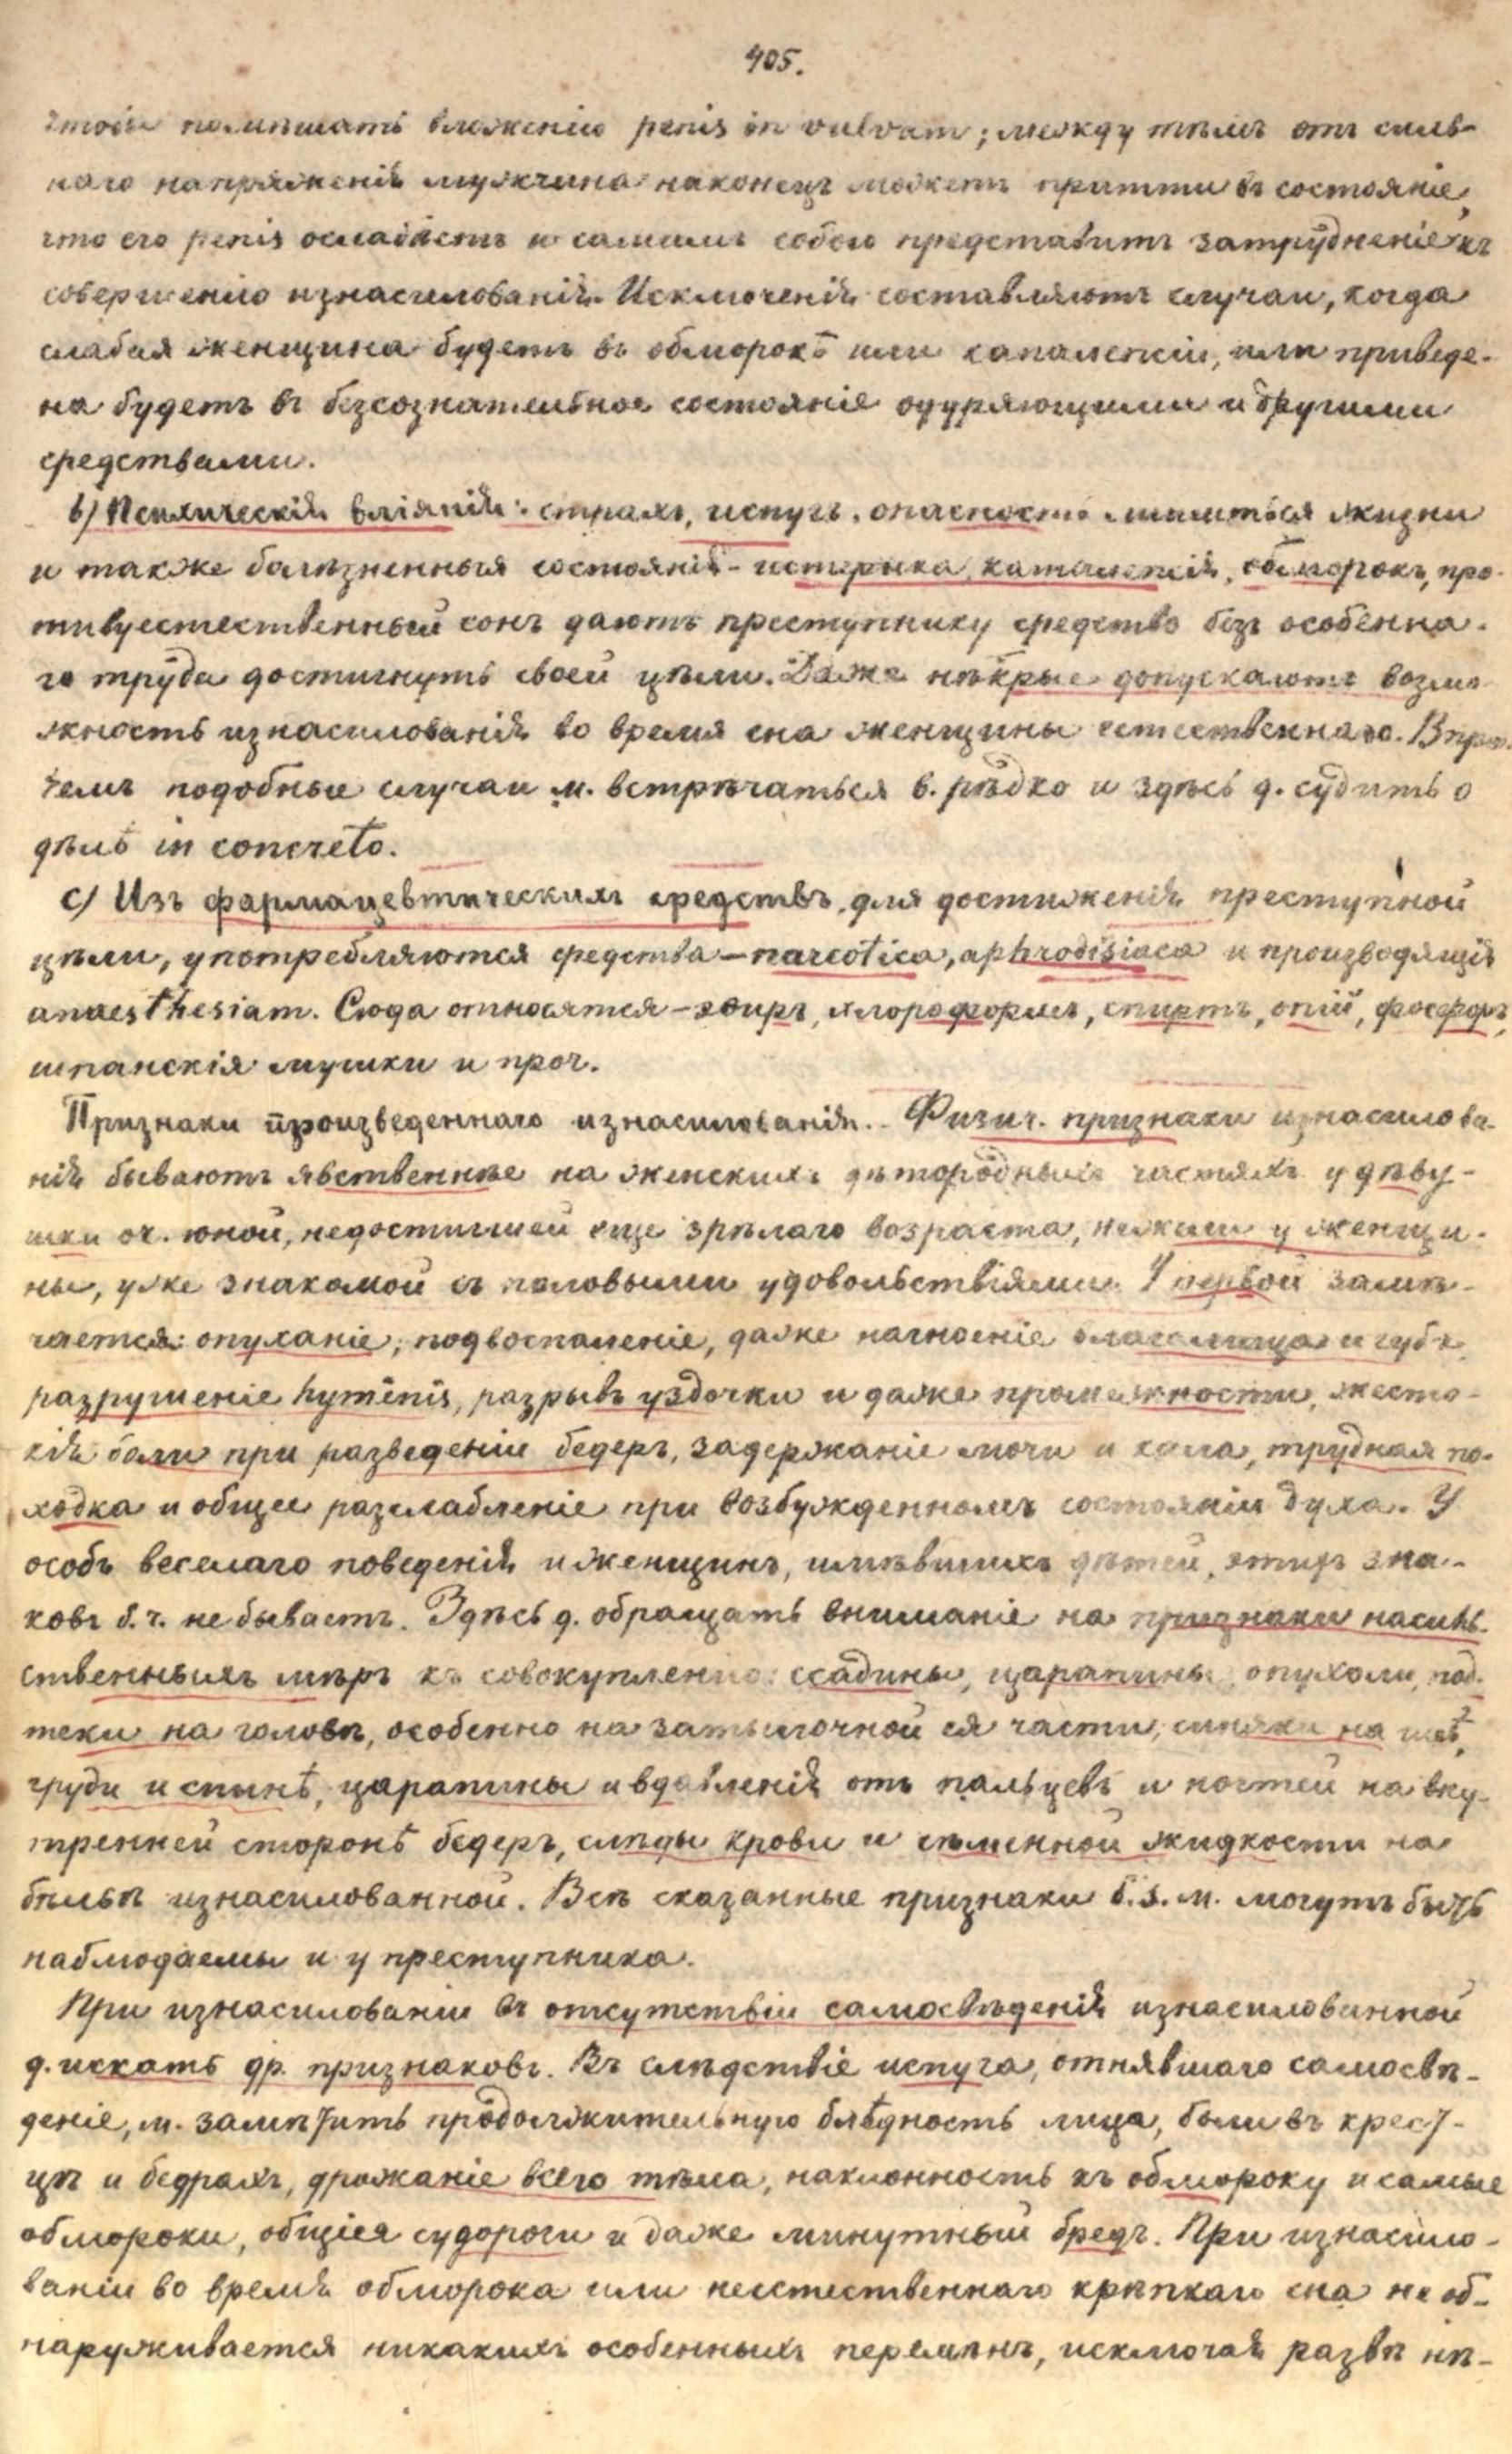 405.
помѣшать вложенію penis in vulvam; между тѣмъ отъ силь-
наго напряженія мужчина наконецъ можетъ притти въ состояніе,
что его penis ослабѣетъ и самимъ собою представитъ затрудненіе къ
совершенію изнасилованія. Исключенія составляютъ случаи, когда
слабая женщина будетъ въ обморокѣ или каталепсіи, или приведе-
на будетъ въ безсознательное состояніе одуряющими и другими
средствами.
b) Психическія вліянія: страхъ, испугъ, опасность лишиться жизни
и также болѣзненныя состоянія - истерика, каталепсія, обморокъ, про-
тивуестественный сонъ даютъ преступнику средство безъ особенна-
го труда достигнуть своей цѣли. Даже нѣкрые допускаютъ возмо-
жность изнасилованія во время сна женщины естественнаго. Впро-
чемъ подобные случаи м. встрѣчаться в. рѣдко и здѣсь д. судить о
дѣлѣ in concreto.
c) Изъ фармацевтическихъ средствъ, для достиженія преступной
цѣли, употребляются средства - narcotica, aphrodisiaca и производящія
anaesthesiam. Сюда относятся - эѳиръ, хлороформъ, спиртъ, опій, фосфоръ,
шпанскія мушки и проч.
Признаки произведеннаго изнасилованія. - Физич. признаки изнасилова-
нія бываютъ явственнѣе на женскихъ дѣтородныхъ частяхъ у дѣву-
шки оч. юной, недостигшей еще зрѣлаго возраста, нежели у женщи-
ны, уже знакомой съ половыми удовольствіями. У первой замѣ-
чается: опуханіе, подвоспаленіе, даже нагноеніе влагалища и губъ,
разрушеніе hyménis, разрывъ уздечки и даже промежности, жесто-
кія боли при разведеніи бедеръ, задержаніе мочи и кала, трудная по-
ходка и общее разслабленіе при возбужденномъ состояніи духа. У
особъ веселаго поведенія и женщинъ, имѣвшихъ дѣтей, этихъ зна-
ковъ б. ч. не бываетъ. Здѣсь д. обращать вниманіе на признаки насиль-
ственныхъ мѣръ къ совокупленію: ссадины, царапины, опухоли, под-
теки на головѣ, особенно на затылочной ея части, синяки на шеѣ,
груди и спинѣ, царапины и вдавленія отъ пальцевъ и ногтей на вну-
тренней сторонѣ бедеръ, слѣды крови и сѣменной жидкости на
бѣльѣ изнасилованной. Всѣ сказанные признаки б. з. м. могутъ быть
наблюдаемы и у преступника.
При изнасилованіи въ отсутствіи самосвѣденія изнасилованной
д. искать др. признаковъ. Въ слѣдствіе испуга, отнявшаго самосвѣ-
деніе, м. замѣтить продолжительную блѣдность лица, боли въ крест-
цѣ и бедрахъ, дрожаніе всего тѣла, наклонность къ обмороку и самые
обмороки, общія судороги и даже минутный бредъ. При изнасило-
ваніи во время обморока или неестественнаго крѣпкаго сна не об-
наруживается никакихъ особенныхъ перемѣнъ, исключая развѣ нѣ-